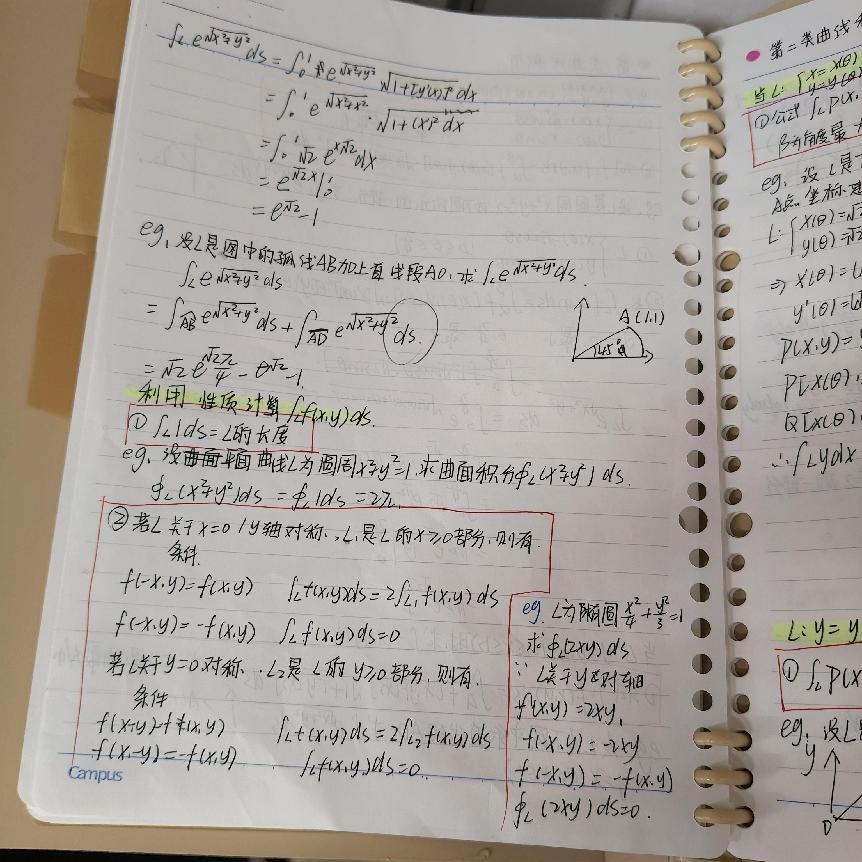 ∫L e^√(x²+y²) ds = ∫₀¹ e^√(x²+y²) √(1+[y'(x)]²) dx
= ∫₀¹ e^√(x²+x²) · √(1+(x)'² dx
= ∫₀¹ √2 e^(x√2) dx
= e^(√2x) |₀¹
= e^√2 - 1
eg, 设L是图中的弧线AB加上直线段AO, 求∫L e^√(x²+y²) ds.
∫L e^√(x²+y²) ds
= ∫AB e^√(x²+y²) ds + ∫AO e^√(x²+y²) ds.
A(1,1)
45°
= √2 e^√2 π/4 - e^√2 - 1.
利用 性质 计算 ∫L f(x,y) ds.
① ∫L 1 ds = L的长度
eg, 设平面曲线L为圆周x²+y²=1, 求曲面积分∮L (x²+y²) ds.
∮L (x²+y²) ds = ∮L 1 ds = 2π.
② 若L关于x=0 / y轴对称, L₁是L的x≥0部分, 则有.
条件.
f(-x,y)=f(x,y) ∫L f(x,y)ds = 2∫L₁ f(x,y) ds
f(-x,y) = -f(x,y) ∫L f(x,y) ds=0
若L关于y=0对称, L₂是L的y≥0部分, 则有.
条件
f(x,-y)=f(x,y) ∫L f(x,y) ds = 2∫L₂ f(x,y) ds
f(x,-y) = -f(x,y) ∫L f(x,y) ds=0.
eg. L为椭圆x²/4+y²/3=1
求∮L (2xy) ds
∵ L关于y 对轴
f(x,y) = 2xy,
f(-x,y) = -2xy
f(-x,y) = -f(x,y)
∮L (2xy) ds=0.
Campus
第二类曲线
当L: { x=x(θ)
y=y(θ)
① 公式 ∫L P(x,
β为角度最
eg, 设L是
A点, 坐标
L: { x(θ)=√
y(θ)=√
⇒ x'(θ)=
y'(θ)=
P(x,y)=
P[x(θ),
Q[x(θ),
∴ ∫L ydx
L: y=y
① ∫L P(x
eg, 设L
y